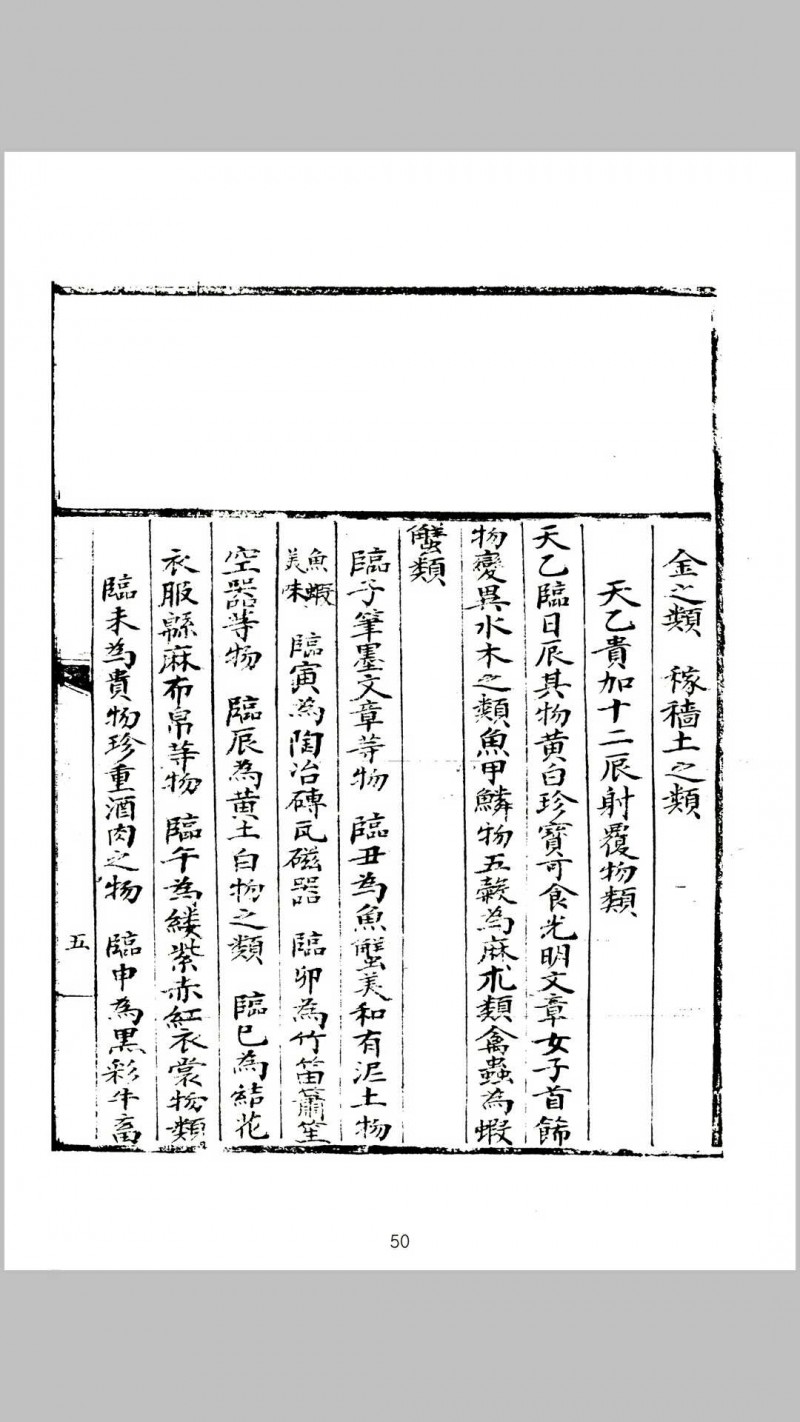 金之類　稼穡土之類
天乙貴加十二辰射覆物類
天乙臨日辰其物黃白珍寶可食光明文章女子首飾
物變異水木之類魚甲鱗物五穀為麻朮類禽蟲為蝦
蟹類
臨子筆墨文章等物　臨丑為魚蟹美和有泥土物
魚蝦美味　臨寅為陶冶磚瓦磁器　臨卯為竹笛簫笙
空器等物　臨辰為黃土白物之類　臨巳為結花
衣服緜麻布帛等物　臨午為緌紫赤紅衣裳物類
臨未為貴物珍重酒肉之物　臨申為黑彩牛畜
五
50